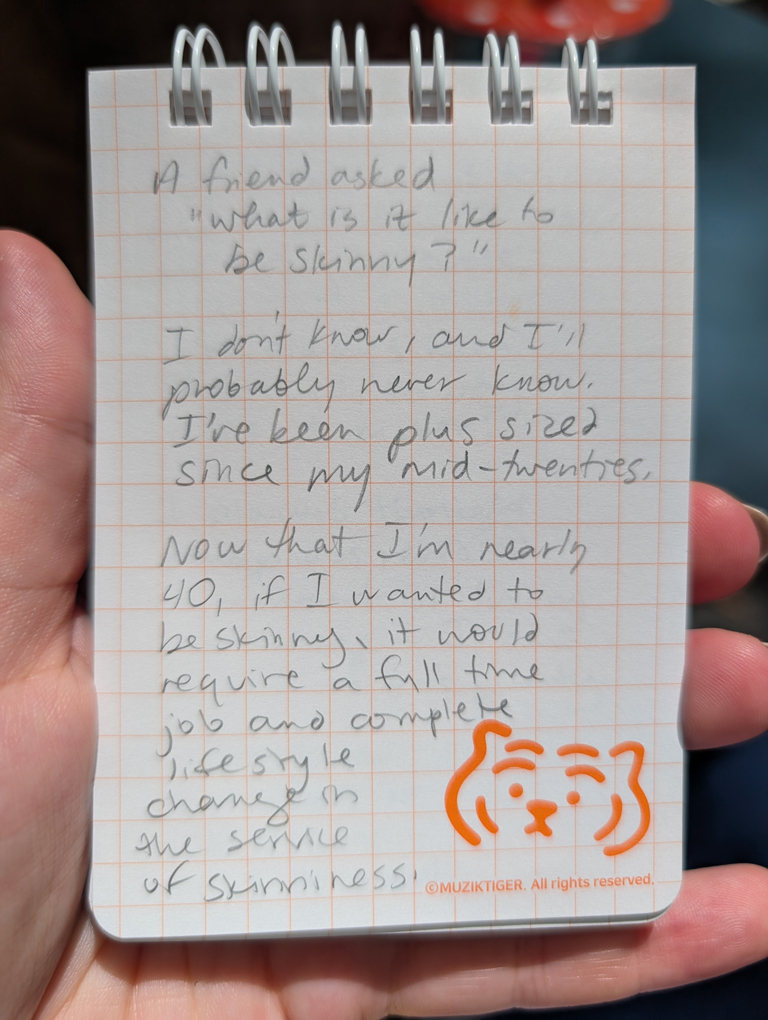 A friend asked
"what is it like to
be skinny?"
I don't know, and I'll
probably never know.
I've been plus sized
since my mid-twenties.
Now that I'm nearly
40, if I wanted to
be skinny, it would
require a full time
job and complete
lifestyle
change in
the service
of skinniness.
©MUZIKTIGER. All rights reserved.